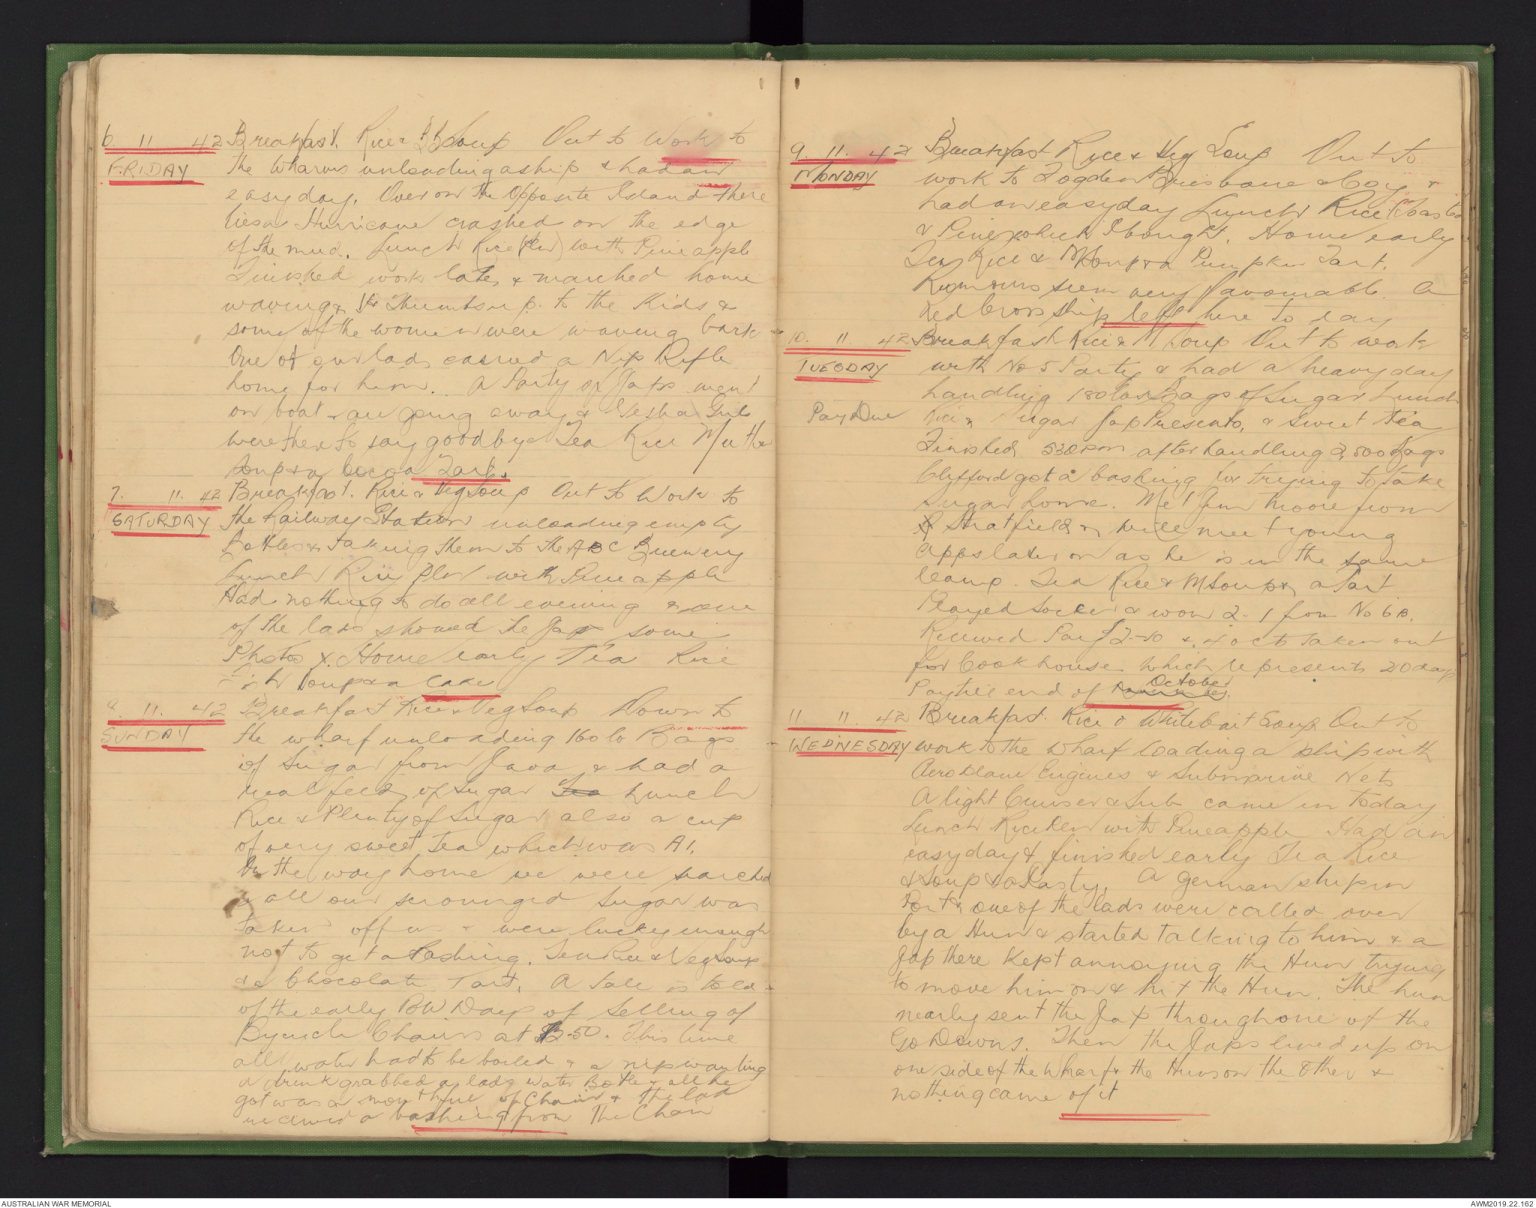 6. 11. 42 Breakfast. Rice & Soup Out to Work to
FRIDAY the Wharves unloading a ship & had an
easy day. Over on the Opposite Island there
lies a Hurricane crashed on the edge
of the mud. Lunch Rice with Pineapple
Finished work late & marched home
waving & Thumbs up to the Kids &
some of the women were waving back
One of our lads carried a Nip Rifle
home for him. A Party of Japs went
on boat & are going away & Geisha Girls
were there to say goodbye Tea Rice M & Veg
Soup & a Cocoa Tart.
7. 11. 42 Breakfast. Rice & Veg Soup Out to Work to
SATURDAY the Railway Station unloading empty
Bottles & taking them to the ABC Brewery
Lunch Rice Plus with Pineapple
Had nothing to do all evening & one
of the lads showed the Jap some
Photos &. Home early Tea Rice
Soup & a Cake
8. 11. 42 Breakfast Rice & Veg Soup Down to
SUNDAY the wharf unloading 160 lb Bags
of Sugar from Java & had a
real feed of Sugar Lunch
Rice & Plenty of Sugar also a cup
of very sweet Tea which was A1.
On the way home we were searched
& all our scrounged Sugar was
taken off us & were lucky enough
not to get a Bashing. Tea Rice & Veg Soup
& a Chocolate Tart. A Tale is told
of the early POW Days of Selling of
Bycicle Chains at $2-50. This time
all water had to be boiled & a nip wanting
a drink grabbed a lads Water Bottle & all he
got was a mouthful of Chain & the lad
received a bashing from the Chain
9. 11. 42 Breakfast Rice & Veg Soup Out to
MONDAY work to Brisbane & Coy &
had an easy day Lunch Rice
& Pine which I bought. Home early
Tea Rice & M Soup & a Pumpkin Tart.
Rumours seem very favourable. A
Red Cross ship left here to day
10. 11. 42 Breakfast Rice & M Soup Out to work
TUESDAY with No 5 Party & had a heavy day
handling 180 lb Bags of Sugar Lunch
Pay Due Rice & Sugar Jap Presents, & Sweet Tea
Finished 530 pm after handling 2,500 Bags
Clifford got a bashing for trying to take
Sugar home. Met Jim Moore from
Strathfield & will meet young
Apps later on as he is in the same
Camp. Tea Rice & M Soup & a Tart
Played Soccer & won 2-1 from No 6 B.
Received Pay $2-10 & 40 cts taken out
for Cookhouse which represents 20 days
Pay till end of October
11. 11. 42 Breakfast. Rice & Whitebait Soup Out to
WEDNESDAY work to the wharf loading a ship with
Aeroplane Engines & Submarine Nets
A light Cruiser & Sub came in today
Lunch Rice with Pineapple Had an
easy day & finished early Tea Rice
& Soup & a Pasty. A German ship in
Port & one of the lads were called over
by a Hun & started talking to him & a
Jap there kept annoying the Hun trying
to move him on & hit the Hun. The hun
nearly sent the Jap through one of the
Go Downs. Then the Japs lined up on
one side of the wharf & the Huns on the other &
nothing came of it
AUSTRALIAN WAR MEMORIAL
AWM2019.22.162